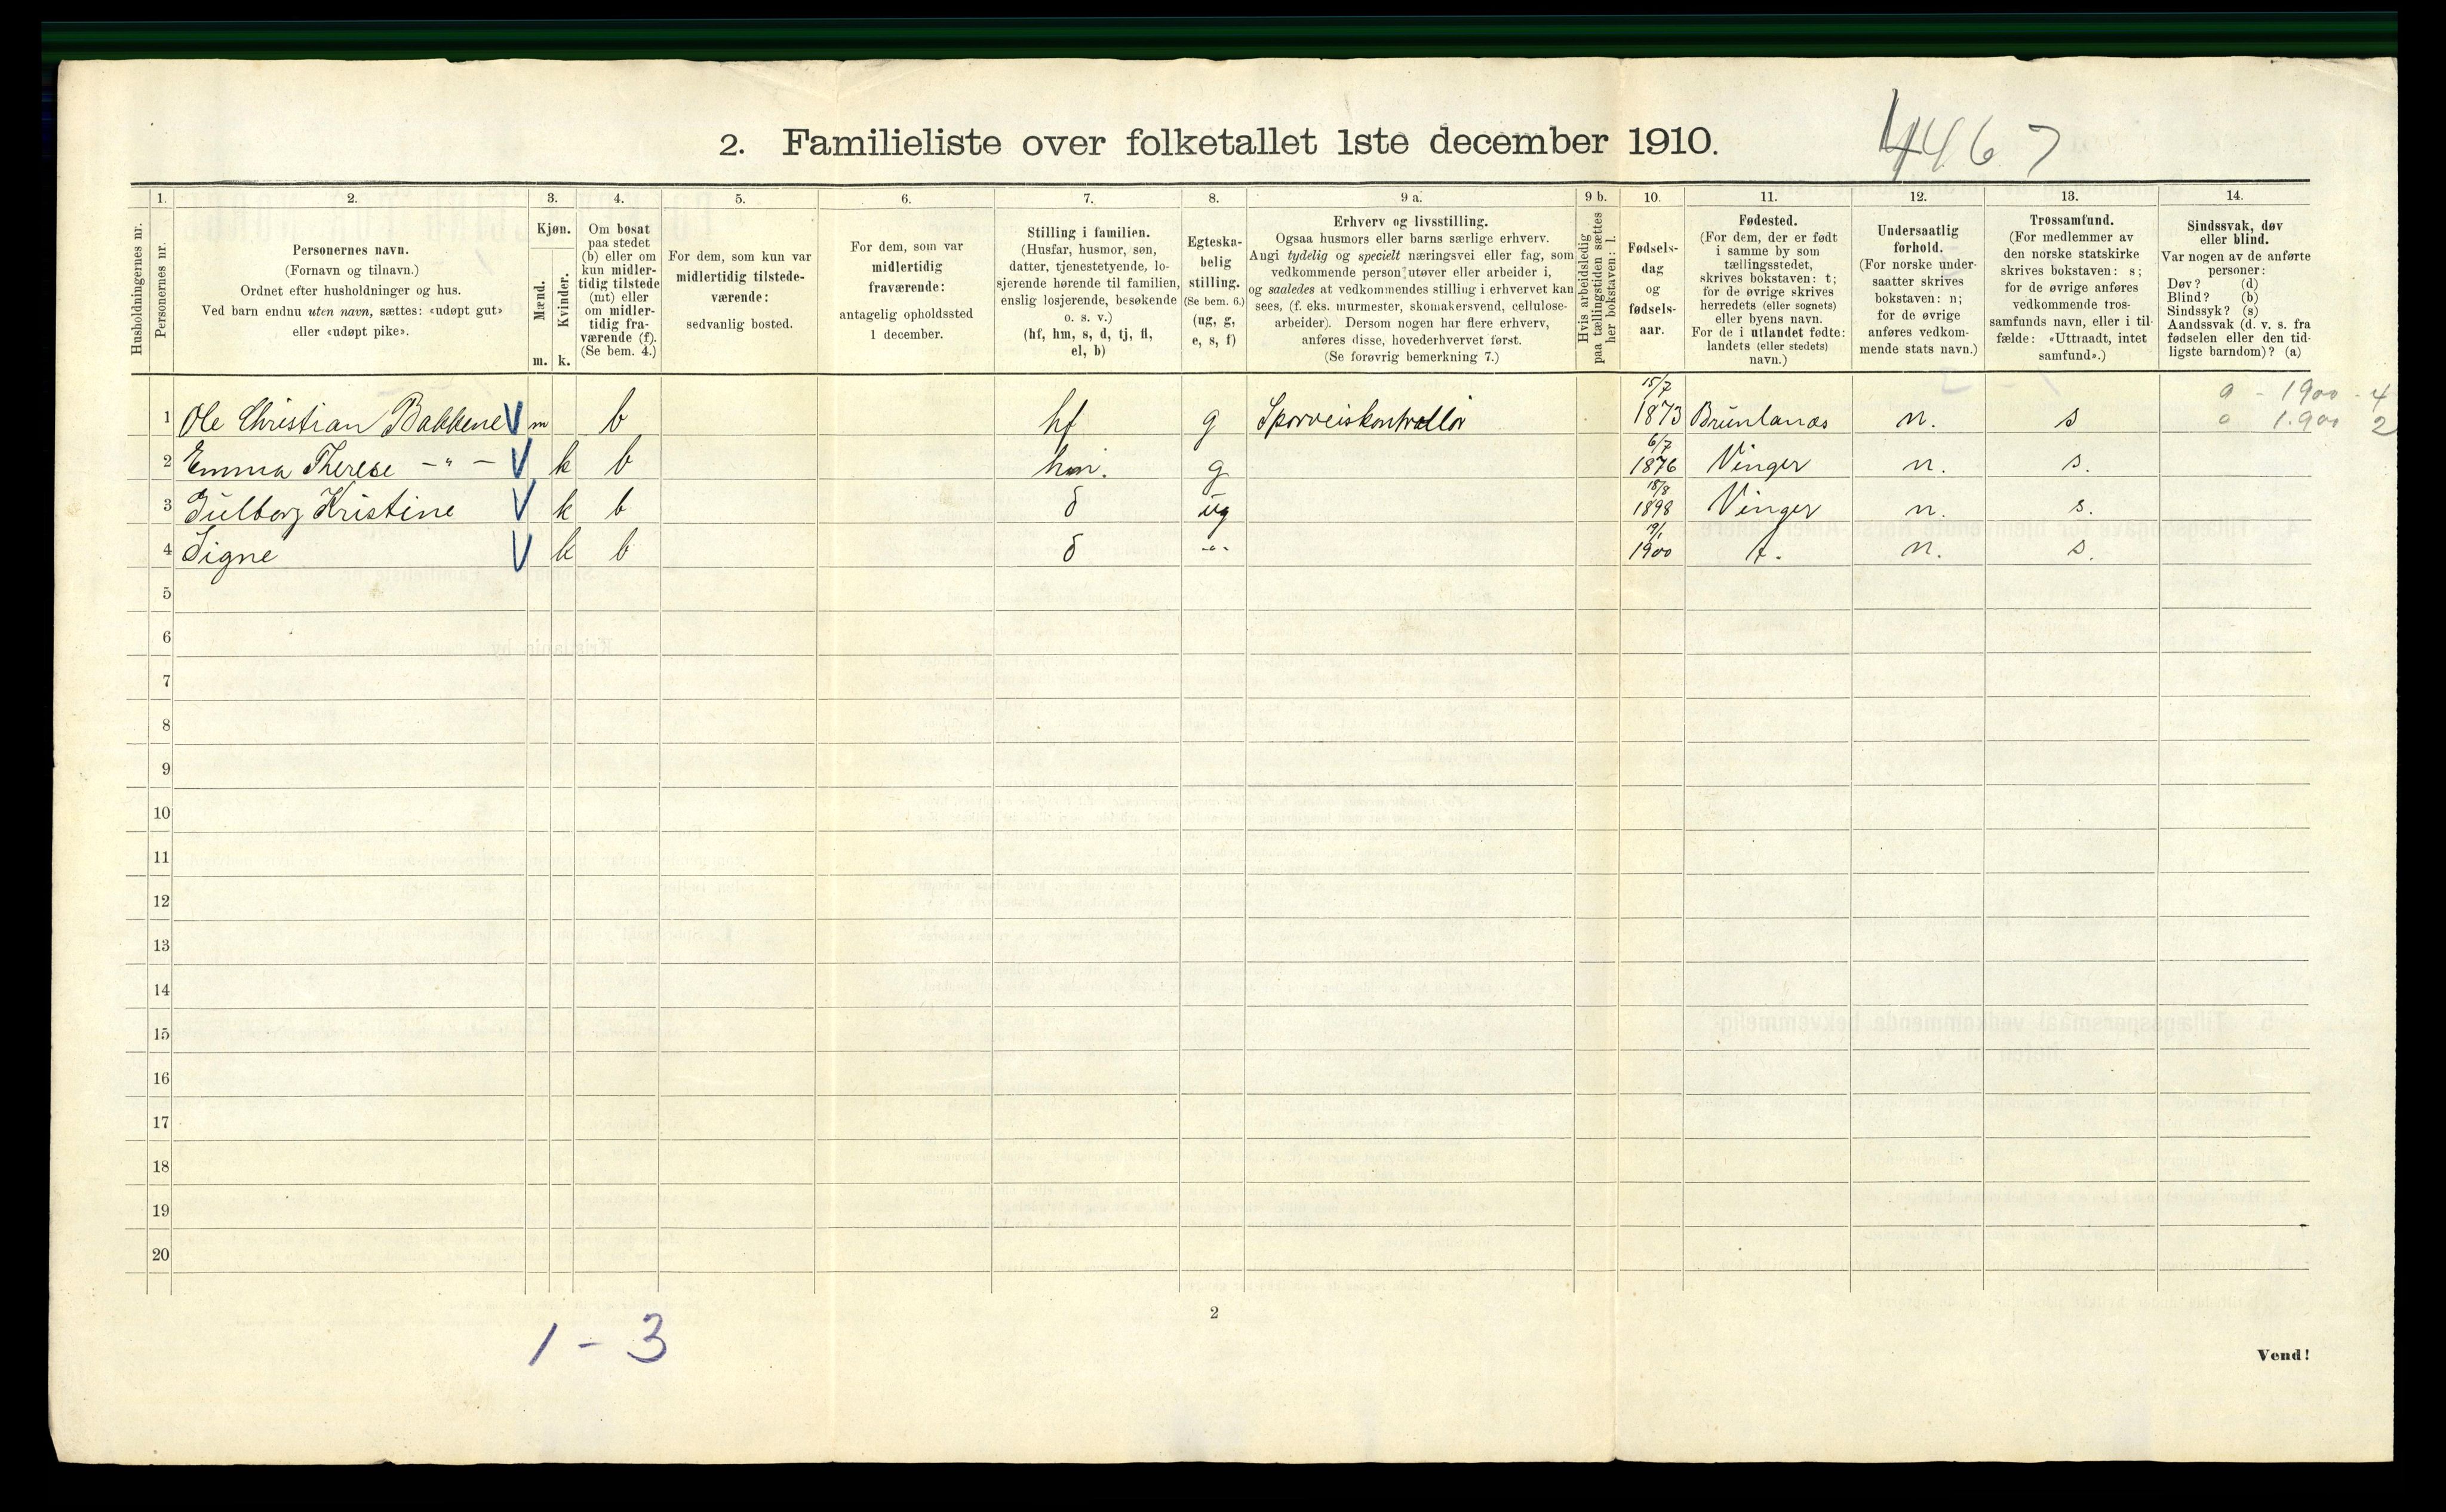 2. Familieliste over folketallet 1ste december 1910.
4467
Husholdningernes nr.
1.
Personernes nr.
2.
Personernes navn.
(Fornavn og tilnavn.)
Ordnet efter husholdninger og hus.
Ved barn endnu uten navn, sættes: «udøpt gut»
eller «udøpt pike».
3.
Kjøn.
Mænd.
m.
Kvinder.
k.
4.
Om bosat
paa stedet
(b) eller om
kun midler-
tidig tilstede
(mt) eller
om midler-
tidig fra-
værende (f).
(Se bem. 4.)
5.
For dem, som kun var
midlertidig tilstede-
værende:
sedvanlig bosted.
6.
For dem, som var
midlertidig
fraværende:
antagelig opholdssted
1 december.
7.
Stilling i familien.
(Husfar, husmor, søn,
datter, tjenestetyende, lo-
sjerende hørende til familien,
enslig losjerende, besøkende
o. s. v.)
(hf, hm, s, d, tj, fl,
el, b)
8.
Egteska-
belig
stilling.
(Se bem. 6.)
(ug, g,
e, s, f)
9 a.
Erhverv og livsstilling.
Ogsaa husmors eller barns særlige erhverv.
Angi tydelig og specielt næringsvei eller fag, som
vedkommende person utøver eller arbeider i,
og saaledes at vedkommendes stilling i erhvervet kan
sees, (f. eks. murmester, skomakersvend, cellulose-
arbeider). Dersom nogen har flere erhverv,
anføres disse, hovederhvervet først.
(Se forøvrig bemerkning 7.)
9 b.
Hvis arbeidsledig
paa tællingstiden sættes
her bokstaven: l.
10.
Fødsels-
dag
og
fødsels-
aar.
11.
Fødested.
(For dem, der er født
i samme by som
tællingsstedet,
skrives bokstaven: t;
for de øvrige skrives
herredets (eller sognets)
eller byens navn.
For de i utlandet fødte:
landets (eller stedets)
navn.)
12.
Undersaatlig
forhold.
(For norske under-
saatter skrives
bokstaven: n;
for de øvrige
anføres vedkom-
mende stats navn.)
13.
Trossamfund.
(For medlemmer av
den norske statskirke
skrives bokstaven: s;
for de øvrige anføres
vedkommende tros-
samfunds navn, eller i til-
fælde: «Uttraadt, intet
samfund».)
14.
Sindssvak, døv
eller blind.
Var nogen av de anførte
personer:
Døv? (d)
Blind? (b)
Sindssyk? (s)
Aandssvak (d. v. s. fra
fødselen eller den tid-
ligste barndom)? (a)
1 Ole Christian Bakkene V m b hf g Sporveiskontrollør 15/7 1873 Brunlanæs n. s
- 1900 - 4
1.900 2
2 Emma Therese - " - V k b hm. g 6/7 1876 Vinger n. s.
3 Gulborg Kristine V k b d ug 18/8 1898 Vinger n. s.
4 Signe V k b d -"- 9/1 1900 t. n. s.
5
6
7
8
9
10
11
12
13
14
15
16
17
18
19
20
2
1 - 3
Vend!